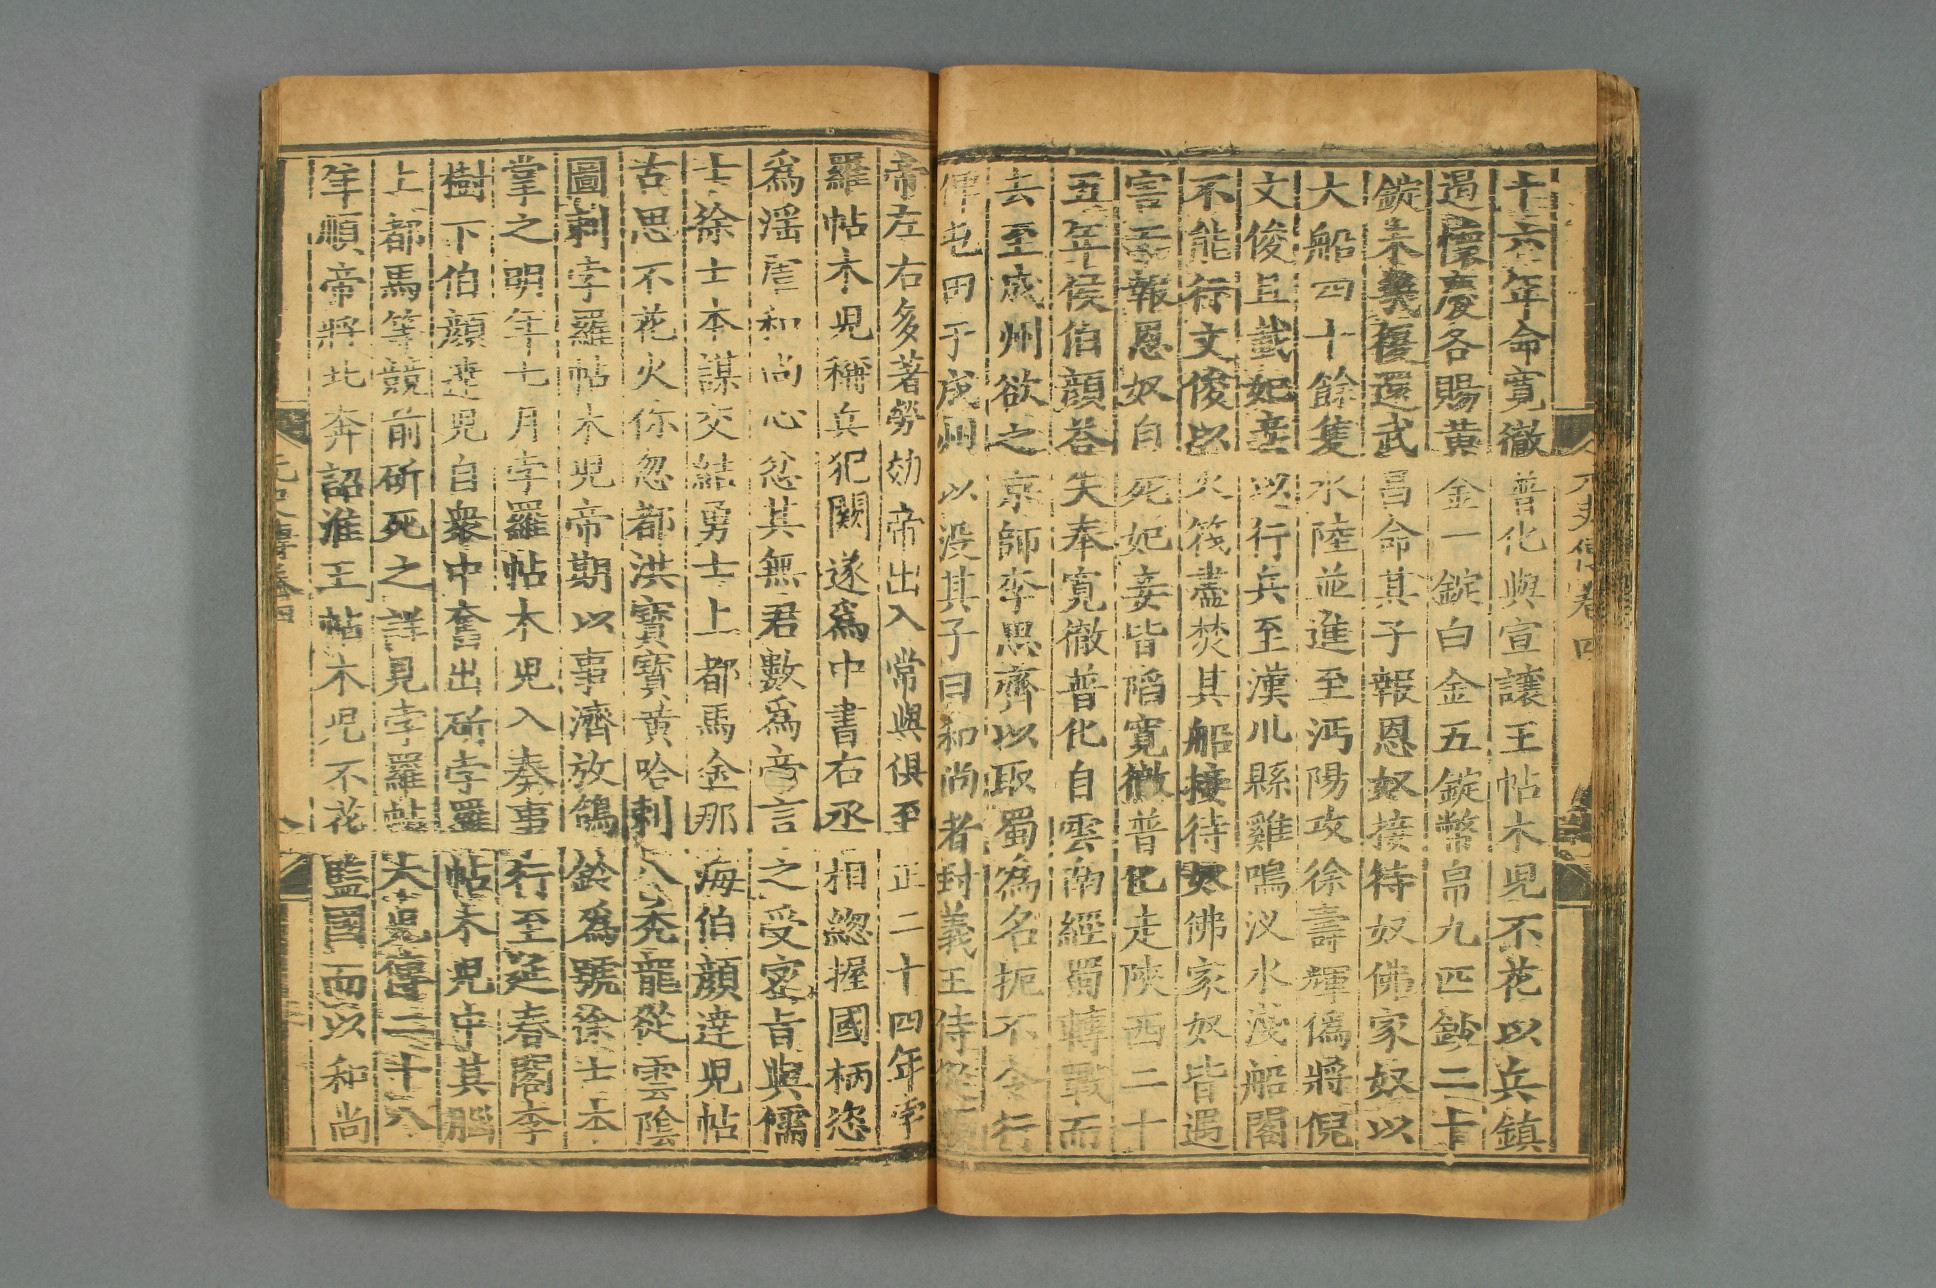 十六年命寬徹普化與宣讓王帖木兒不花以兵鎮
遏懷慶各賜黃金一錠白金五錠幣帛九匹鈔二十
錠未幾復還武昌命其子報恩奴接待奴佛家奴以
大船四十餘隻水陸並進至沔陽攻徐壽輝僞將倪
文俊且載妃妾以行兵至漢川縣雞鳴汊水淺船閣
不能行文俊以火筏盡焚其船接待奴佛家奴皆遇
害而報恩奴自死妃妾皆陷寬徹普化走陝西二十
五年侯伯顏荅失奉寬徹普化自雲南經蜀轉戰而
去至成州欲之京師李思齊以取蜀爲名扼不令行
俾屯田于成州以没其子曰和尚者封義王侍從順
帝左右多著勞効帝出入常與俱至正二十四年孛
羅帖木兒稱兵犯闕遂爲中書右丞相緫握國柄恣
爲滛虐和尚心忿其無君數爲帝言之受密旨與儒
士徐士本謀交結勇士上都馬金那海伯顏達兒帖
古思不花火你忽都洪寶寶黃哈剌八禿龍從雲陰
圖刺孛羅帖木兒帝期以事濟放鴿鈴爲號徐士本
掌之明年七月孛羅帖木兒入奏事行至延春閣李
樹下伯顏達兒自衆中奮出斫孛羅帖木兒中其腦
上都馬等競前斫死之詳見孛羅帖木兒傳二十八
年順帝將北奔詔淮王帖木兒不花監國而以和尚
元史傳卷四